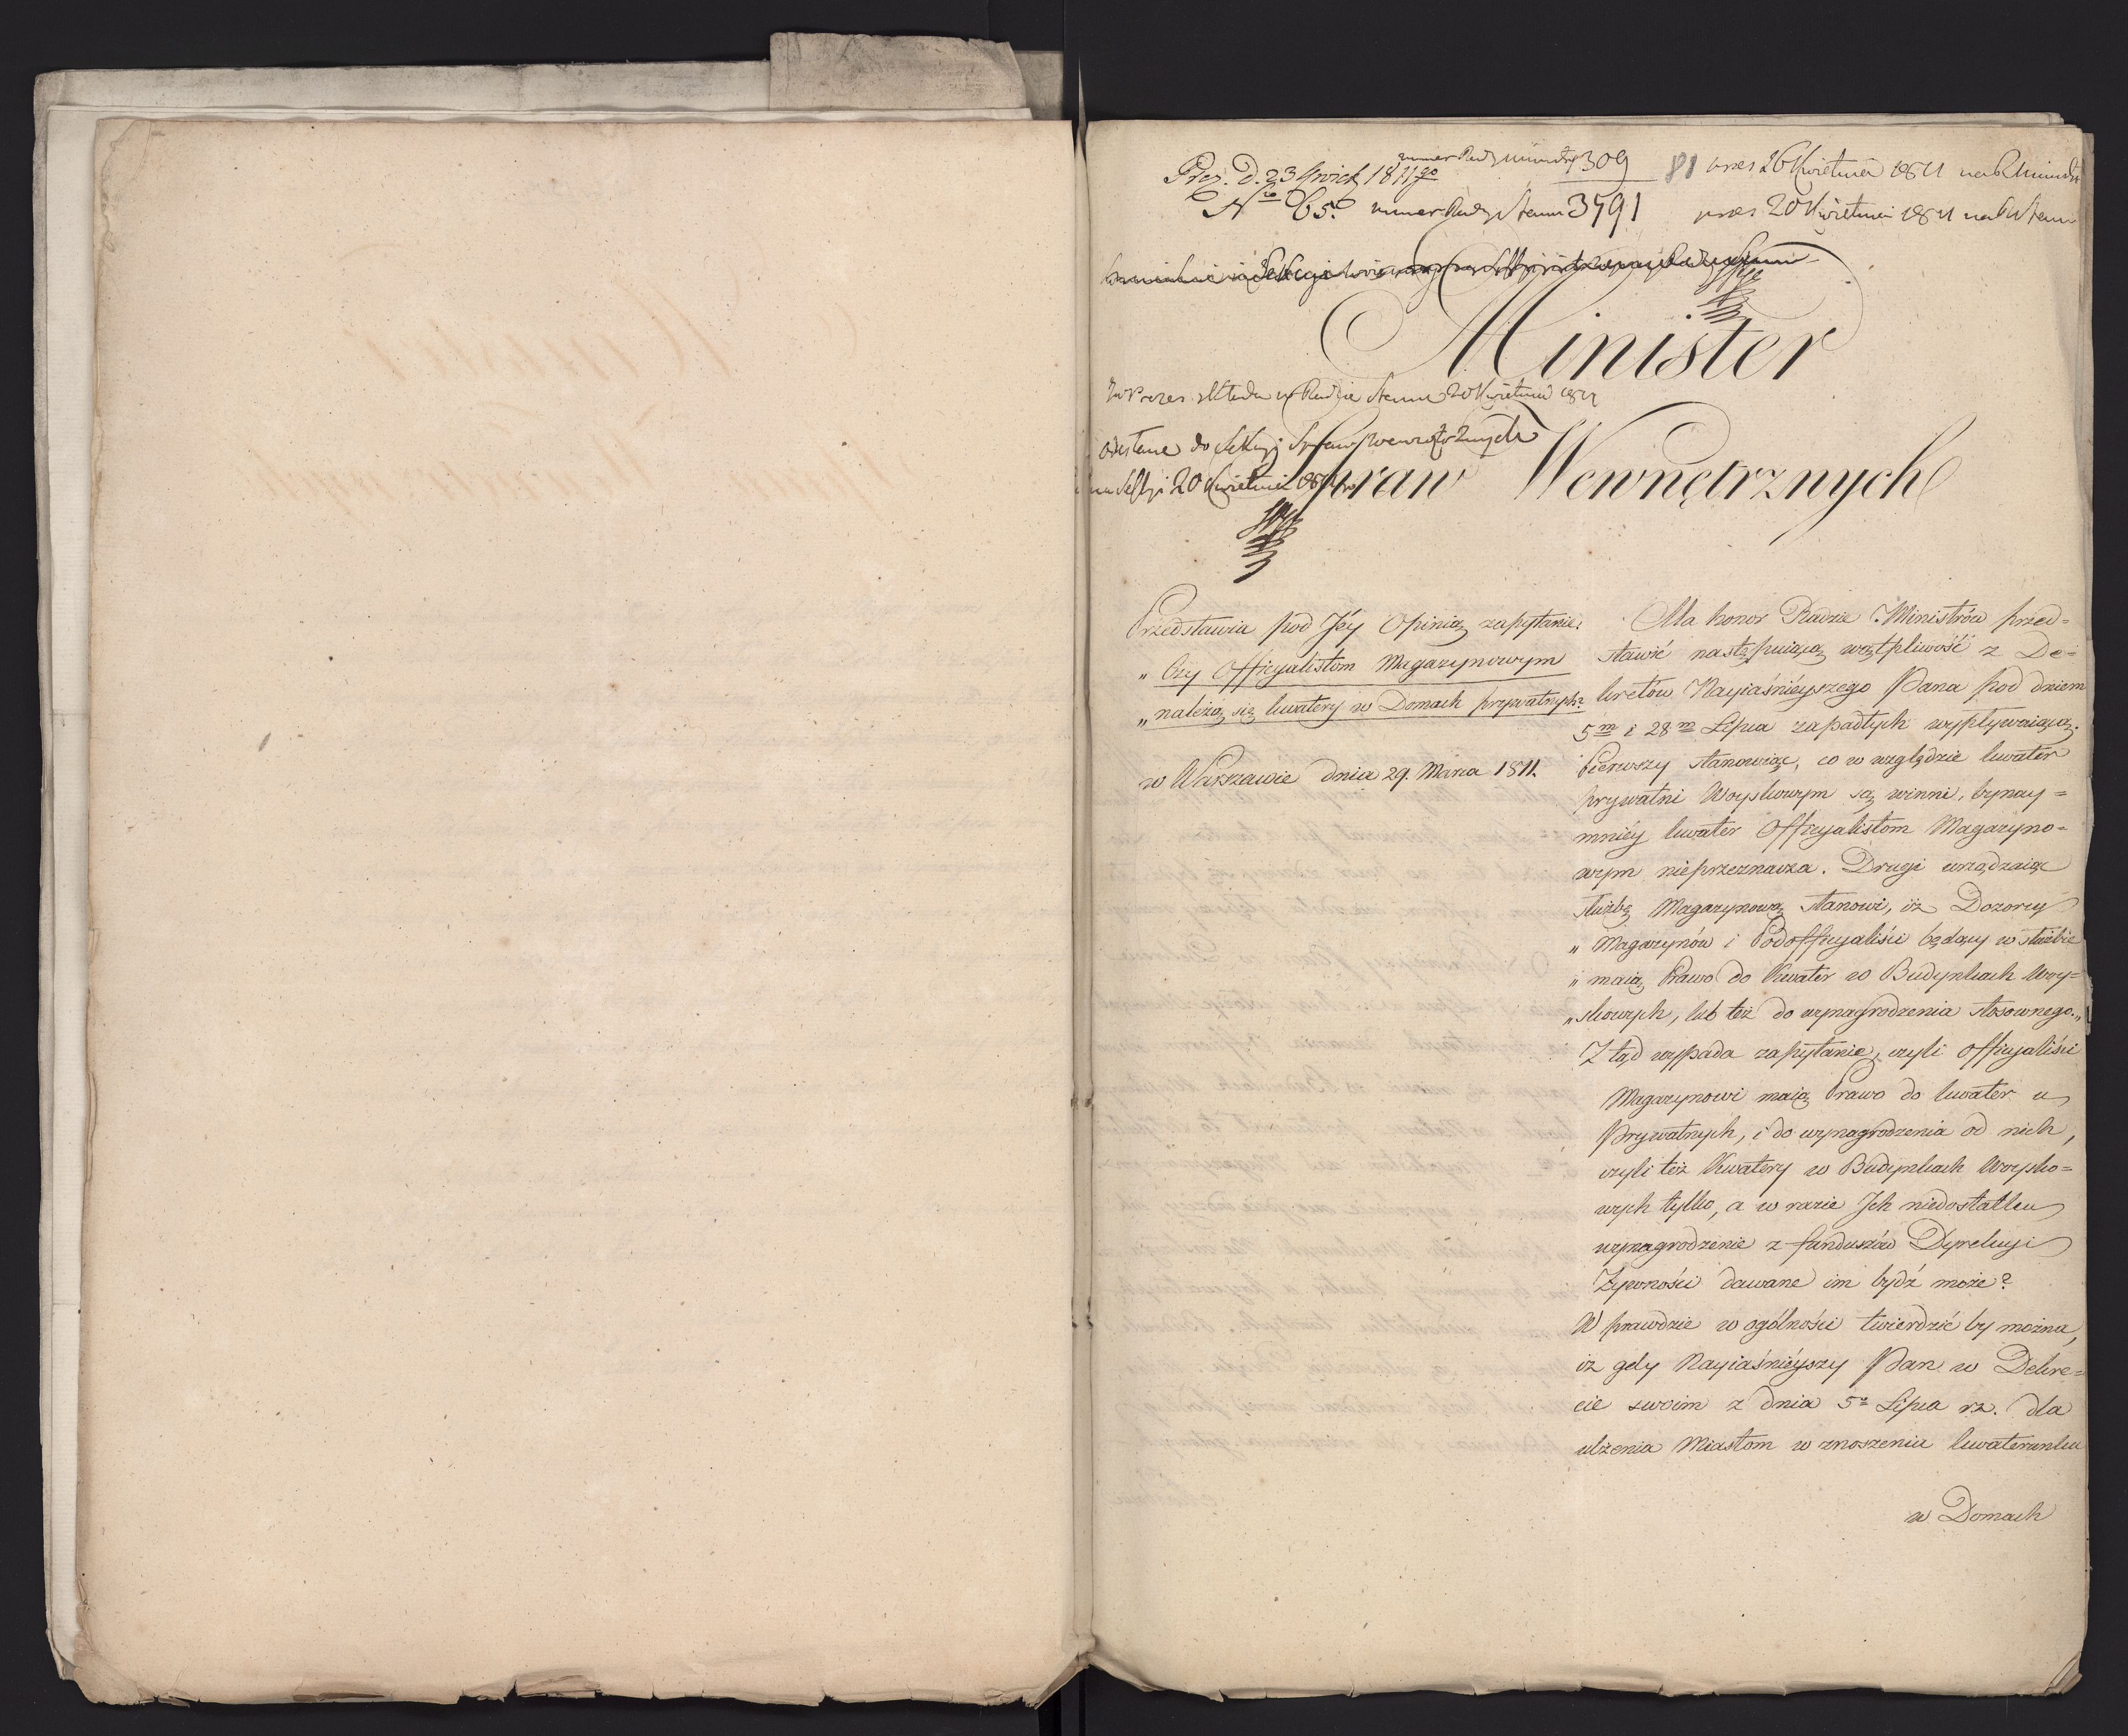 Prez. D. 23 Kwiet. 1811go numer Rady Ministr. 309 81 prez 26 Kwietnia 1811 na R Ministr
No 65. numer Rady Stanu 3791 prez 20 Kwietnia 1811 na R Stanu
Minister
Spraw Wewnętrznych
w Radzie Stanu 20 Kwietnia 1811
odesłane do Sekcyi Spraw Wewnętrznych
na Sessyi 20 Kwietnia 1811
Przedstawia pod Jéy Opinią zapytanie:
„ Czy Officyalistom Magazynowym
„ należą się kwatery w Domach prywatnych?
w Warszawie dnia 29. Marca 1811.
Ma honor Radzie Ministrów przed=
stawić następuiącą wątpliwość z De=
kretów Nayiaśnieyszego Pana pod dniem
5m i 28m Lipca zapadłych wypływaiącą.
Pierwszy stanowiąc, co w względzie kwater
prywatni Woyskowym są winni, bynay=
mniéy kwater Officyalistom Magazyno=
wym nieprzeznacza. Drugi urządzaiąc
służbę Magazynową stanowi, iż Dozorcy
„ Magazynów i Podofficyaliści będący w służbie
„ maią Prawo do Kwater w Budynkach Woy=
„ skowych, lub też do wynagrodzenia stosownego.„
Z tąd wypada zapytanie, czyli Officyaliści
Magazynowi maią Prawo do kwater u
Prywatnych, i do wynagrodzenia od nich,
czyli też Kwatery w Budynkach Woysko=
wych tylko, a w razie Jch niedostatku
wynagrodzenie z funduszów Dyrekcyi
Żywności dawane im bydź może?
W prawdzie w ogólności twierdzić by można,
iż gdy Nayiaśnieyszy Pan w Dekre=
cie swoim z dnia 5o Lipca rz. dla
ulżenia Miastom w znoszeniu kwaterunku
w Domach